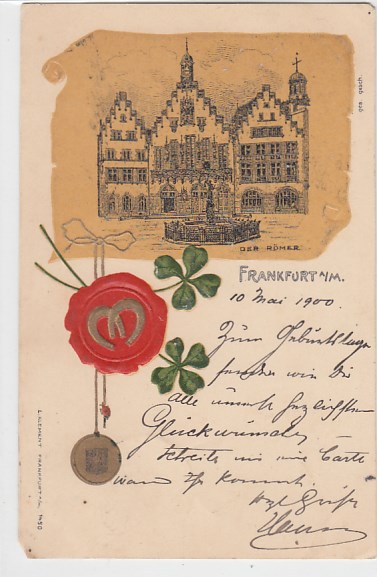 ges. gesch.
DER RÖMER
FRANKFURT A/M.
10 Mai 1900.
Zum Geburtstage
senden wir Dir
Alle unsere herzlichsten
Glückwünsche
Schreibe mir eine Carte
wann Ihr kommt.
Grüße
L. KLEMENT FRANKFURT A/M.